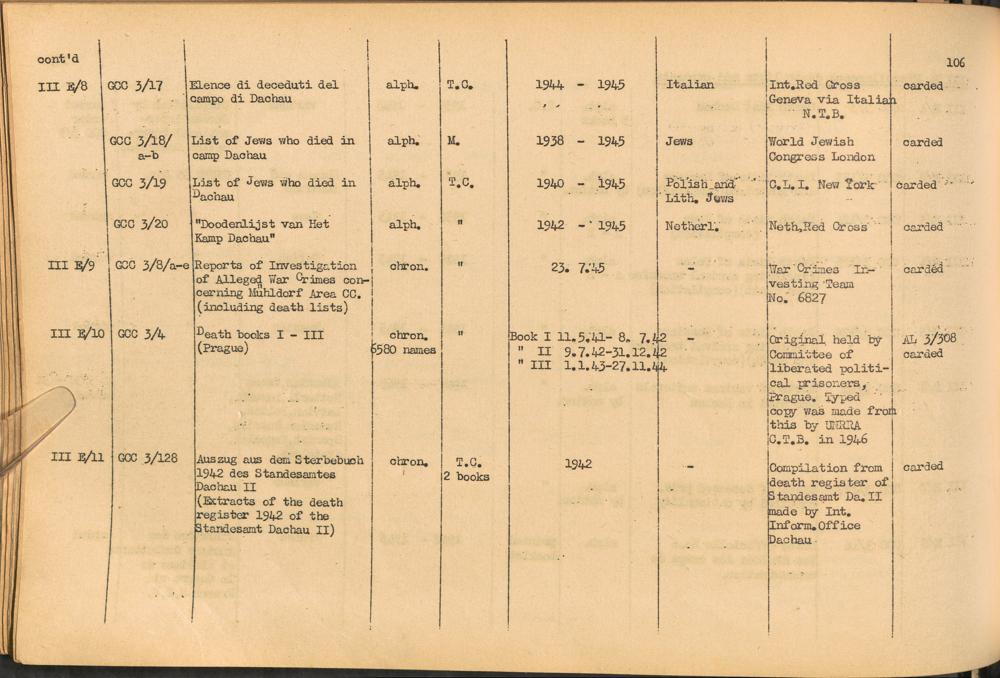 cont'd
106
III E/8 GCC 3/17 Elence di deceduti del alph. T.C. 1944 - 1945 Italian Int.Red Cross carded
campo di Dachau Geneva via Italian
N.T.B.
GCC 3/18/ List of Jews who died in alph. M. 1938 - 1945 Jews World Jewish carded
a-b camp Dachau Congress London
GCC 3/19 List of Jews who died in alph. T.C. 1940 - 1945 Polish and C.L.I. New York carded
Dachau Lith. Jews
GCC 3/20 "Doodenlijst van Het alph. " 1942 - 1945 Netherl. Neth.Red Cross carded
Kamp Dachau"
III E/9 GCC 3/8/a-e Reports of Investigation chron. " 23. 7.45 - War Crimes In- carded
of Alleged War Crimes con- vesting Team
cerning Mühldorf Area CC. No. 6827
(including death lists)
III E/10 GCC 3/4 Death books I - III chron. " Book I 11.5.41- 8. 7.42 - Original held by AL 3/308
(Prague) 6580 names " II 9.7.42-31.12.42 Committee of carded
" III 1.1.43-27.11.44 liberated politi-
cal prisoners,
Prague. Typed
copy was made from
this by UNRRA
C.T.B. in 1946
III E/11 GCC 3/128 Auszug aus dem Sterbebuch chron. T.C. 1942 - Compilation from carded
1942 des Standesamtes 2 books death register of
Dachau II Standesamt Da.II
(Extracts of the death made by Int.
register 1942 of the Inform.Office
Standesamt Dachau II) Dachau